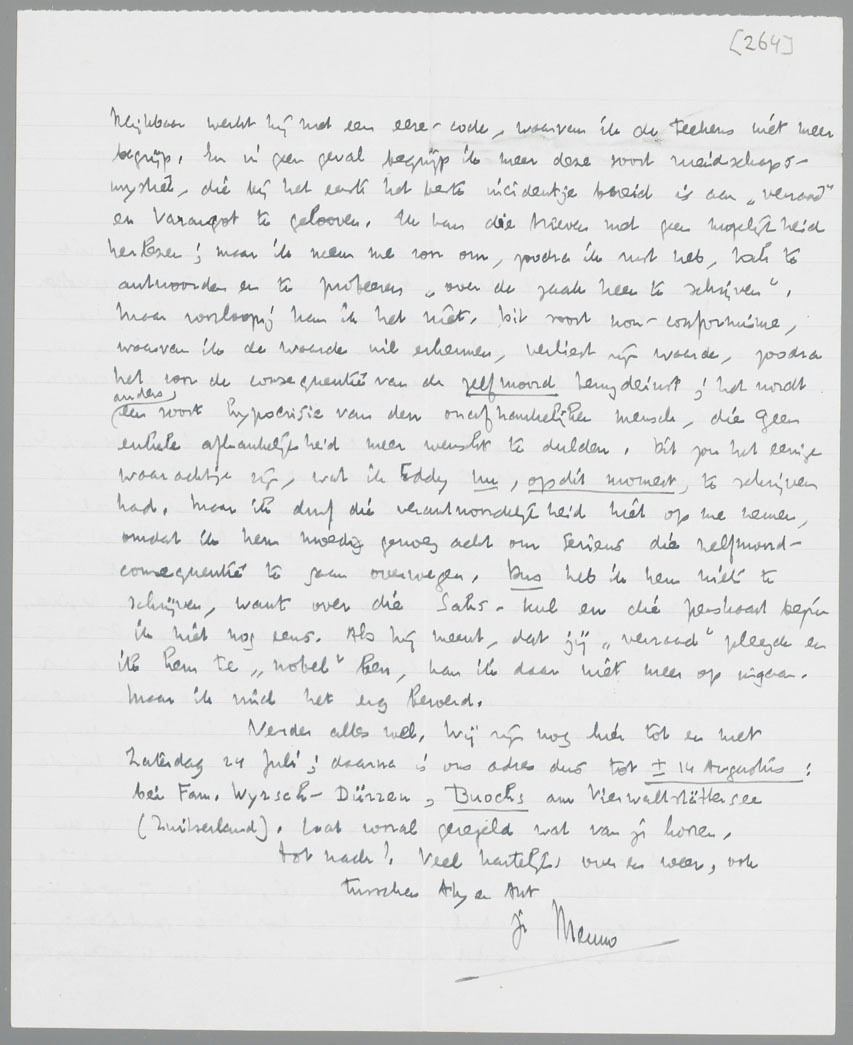 [264]
Blijkbaar werkt hij met een eere-code, waarvan ik de teekens niet meer
begrijp. In ieder geval begrijp ik meer deze soort
mystiek, die bij het eerste het beste incidentje bereid is aan „verraad"
en te gelooven. Ik kan die brieven met geen mogelijkheid
herlezen; maar ik neem me voor om, zoodra ik rust heb, hem te
antwoorden en te probeeren „over de zaak heen te schrijven".
Maar voorloopig kan ik het niet. Dit soort non-conformisme,
waarvan ik de waarde wil erkennen, verliest zijn waarde, zoodra
het voor de consequentie van de zelfmoord terugdeinst; het wordt
anders
een soort hypocrisie van den onafhankelijken mensch, die geen
enkele afhankelijkheid meer wenscht te dulden. Dit zou het eenige
waarachtige zijn, wat ik Eddy nu, op dit moment, te schrijven
had. Maar ik durf die verantwoordelijkheid niet op me nemen,
omdat ik hem moedig genoeg acht om serieus die zelfmoord-
consequentie te gaan overwegen. Dus heb ik hem niets te
schrijven, want over die en die begin
ik niet nog eens. Als hij meent, dat jij „verraad" pleegde en
ik hem te „nobel" ben, kan ik daar niet meer op ingaan.
Maar ik vind het erg beroerd.
Verder alles wel. Wij zijn nog hier tot en met
Zaterdag 24 Juli; daarna is ons adres dus tot ± 14 Augustus:
bei Fam. Wyrsch-Dürren, Buochs am Vierwaldstättersee
(Zwitserland). Laat vooral geregeld wat van je hooren.
Veel hartelijks over en weer, ook
tusschen Ant
je Menno